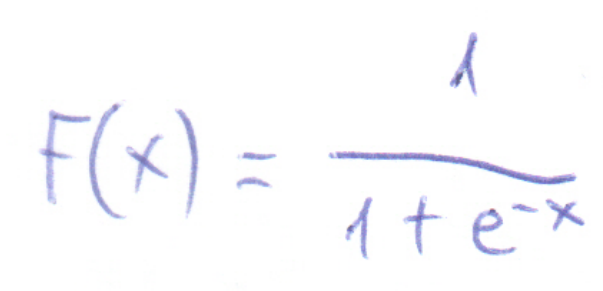 F(x) = 1 / (1 + e^-x)